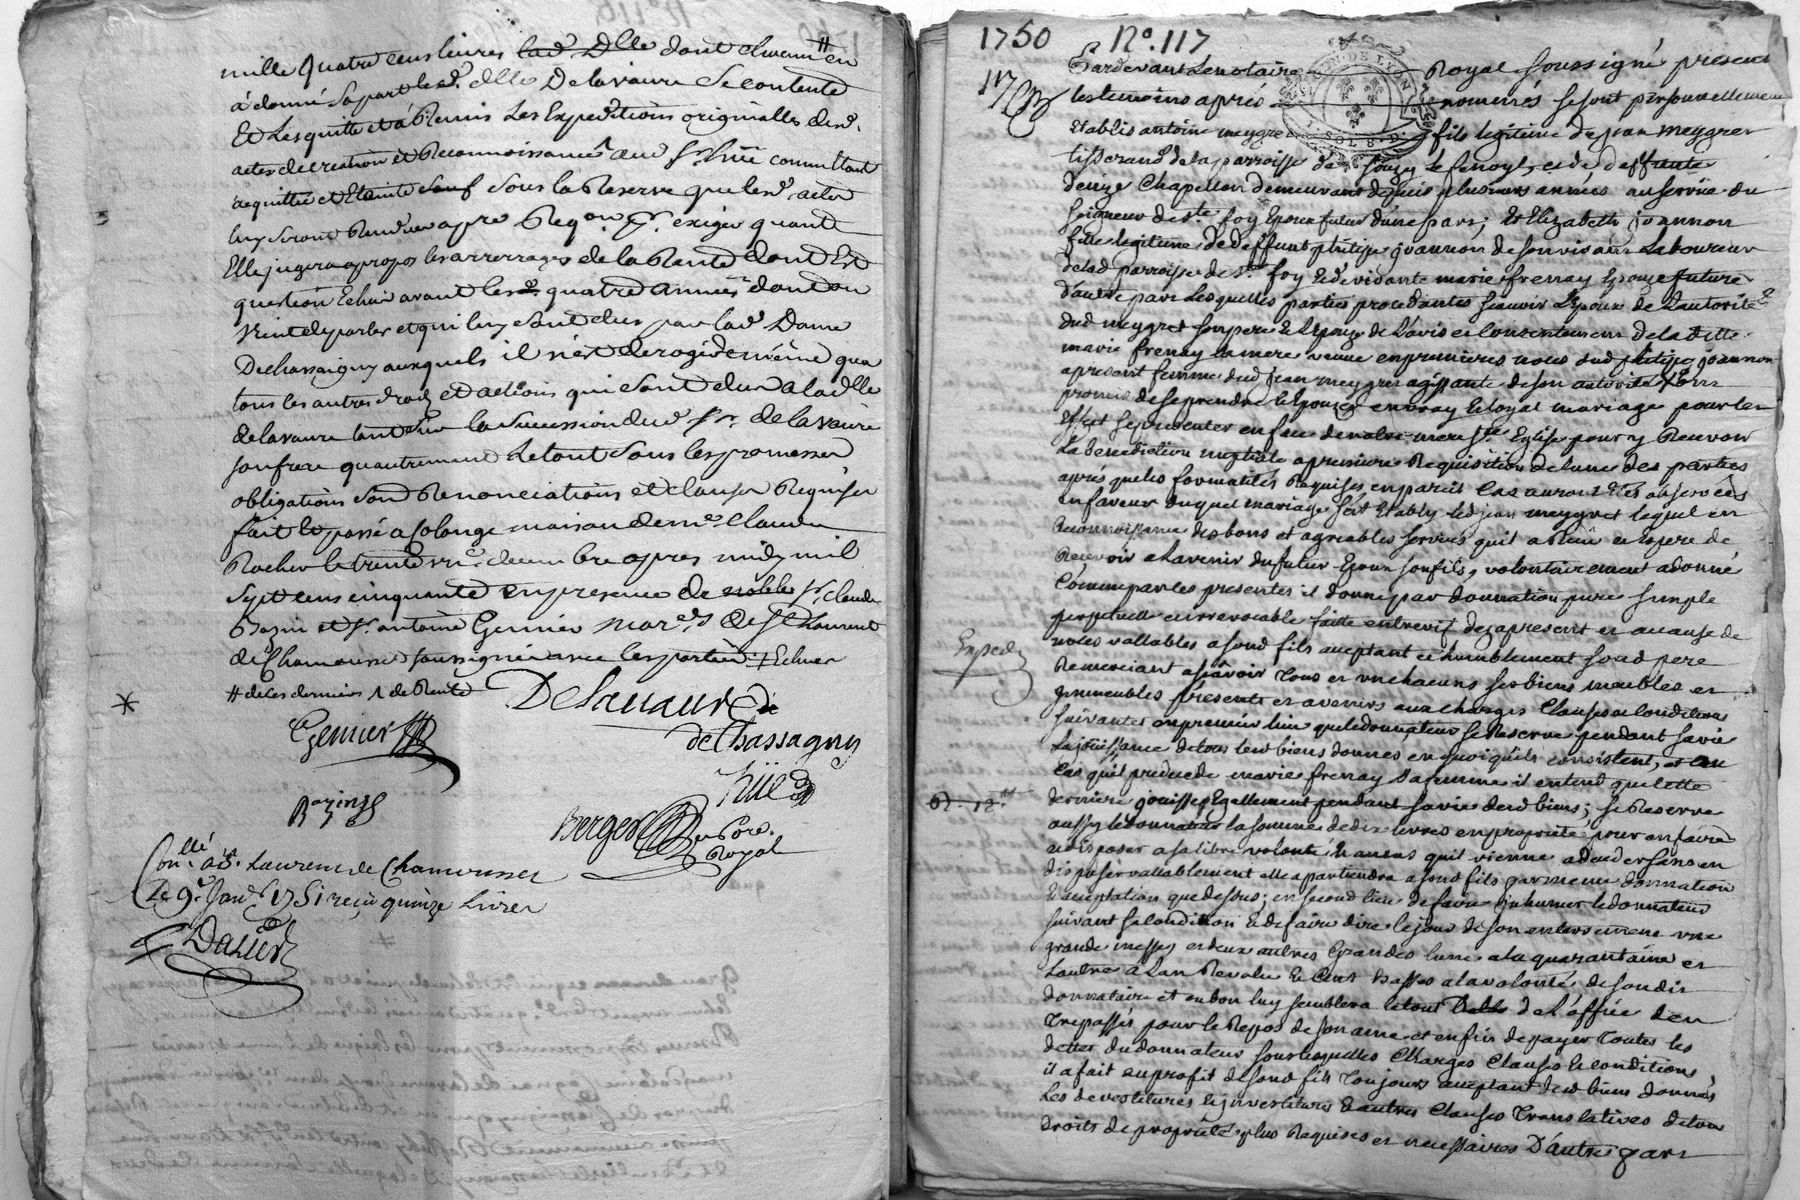 mille quatre cens livres lad.e Dlle dont chacun # en
à donné sa part lesd. dlle Delavaure se contente
Et les quitte et à Remis les Expeditions originalles desd.
actes de creation et Reconnoissance aud. Sr. hüe commettant
acquittée et Eteinte sauf sous la Reserve que lesd. actes
luy seront Rendües apres exiger quant
Elle jugera apropos les arrerages de la Rente dont Est
question Echus avant lesd. quatre années dont on
vient de parler et qui luy sont dus par lad. Dame
Dechassaigny auxquels il n'est derogé de même qua
tous les autres droits et actions qui sont dus a lad. dlle
delavaure tant sur la succession dud. Sr. delavaure
son frere qu'autrement Le tout sous les promesses
obligations Renonciations et clauses Requises
fait et passé a Solange maison de Me. Claude
Rocher le trente decembre apres midy mil
sept cens cinquante en presence de noble Sr. Claude
Bazin et Sr. antoine Genier mar.d de St Laurent
de Chamousset soussignés avec les parties
# de ces dernieres de Rente
Delavaure
Genier
de Chassagny
hüe
Bazin
Berger No.re
Royal
Con.llé a St. Laurent de Chamousset
Le 9e. Janv. 1751 reçu quinze Livres
Dalier
1750 No. 117
117
Pardevant Le notaire Royal soussigné present
les temoins aprés nommés se sont personnellement
Etablis antoine meygret fils legitime de jean meygret
tisserand de la parroisse de Souzy, et de deffunte
denize Chapellon demeurant depuis plusieurs années au service du
seigneur de Ste. foy Epoux futur d'une part; Et Elizabeth joannon
fille legitime de deffunt philipe joannon de son vivant Laboureur
de lad. parroisse de Ste foy Et de vivante marie frenay Epouze future
d'autre part Lesquelles parties procedantes scavoir L'epoux de L'autorité
dud. meygret son pere et L'epouze de L'avis et Consentement de la ditte
marie frenay sa mere veuve en premieres noces dud. philipe joannon
a present femme dud. jean meygret agissante de son autorité ont
promis de se prendre et Epouzer en vray et loyal mariage pour cet
effet se presenter en face de notre mere Ste Eglise pour y Recevoir
La benediction nuptiale a premiere Requisition de l'une des parties
aprés que les formalités Requises en pareil cas auront Etés observées
En faveur duquel mariage s'est Etably led. jean meygret lequel en
Reconnoissance des bons et agreables services qu'il a Reçu et Espere de
Recevoir a L'avenir du futur Epoux son fils, volontairement a donné
Comme par les presentes il donne par donnation pure simple
perpetuelle et irrevocable faitte entrevif dez apresent et a cause de
noces vallables a sond. fils acceptant et humblement sond. pere
Remerciant a scavoir Tous et un chacuns ses biens meubles et
jmmeubles presents et avenirs aux charges Clauses et Conditions
suivantes en premier lieu que le donnateur se Reserve pendant sa vie
La joüissance de tous lesd. biens donnés en quoi qu'ils consistent, et au
Cas qu'il predecede marie frenay sa femme il entend que cette
derniere joüisse Egallement pendant sa vie desd. biens; se Reserve
aussy le donnateur la somme de dix livres en proprieté pour en faire
et disposer a sa libre volonté, Et au cas qu'il vienne a deceder sans en
disposer vallablement elle apartiendra a sond. fils par meme donnation
Et acceptation que dessus; en second lieu de faire jnhumer le donnateur
suivant sa condition et de faire dire le jour de son enterrement une
grande messe, et deux autres Grandes l'une a la quarantaine et
L'autre a L'an Revolu Et Cent Basses a la volonté de son dit
donnataire et ou bon luy semblera le tout de L'office des
Trepassés pour le Repos de son ame, et enfin de payer Toutes les
dettes du donnateur sous lesquelles Charges Clauses et Conditions,
il a fait au profit de sond. fils Toujours acceptant desd. biens donnés,
Les devestitures et jnvestitures et autres Clauses Translatives de tous
droits de proprieté plus Requises et necessaires D'autre part
Exped.
R. 12.tt